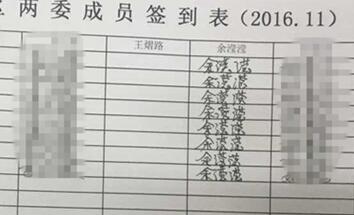 两委成员签到表（2016.11）
王熠路 余滢滢
余滢滢
余滢滢
余滢滢
余滢滢
余滢滢
余滢滢
余滢滢
余滢滢